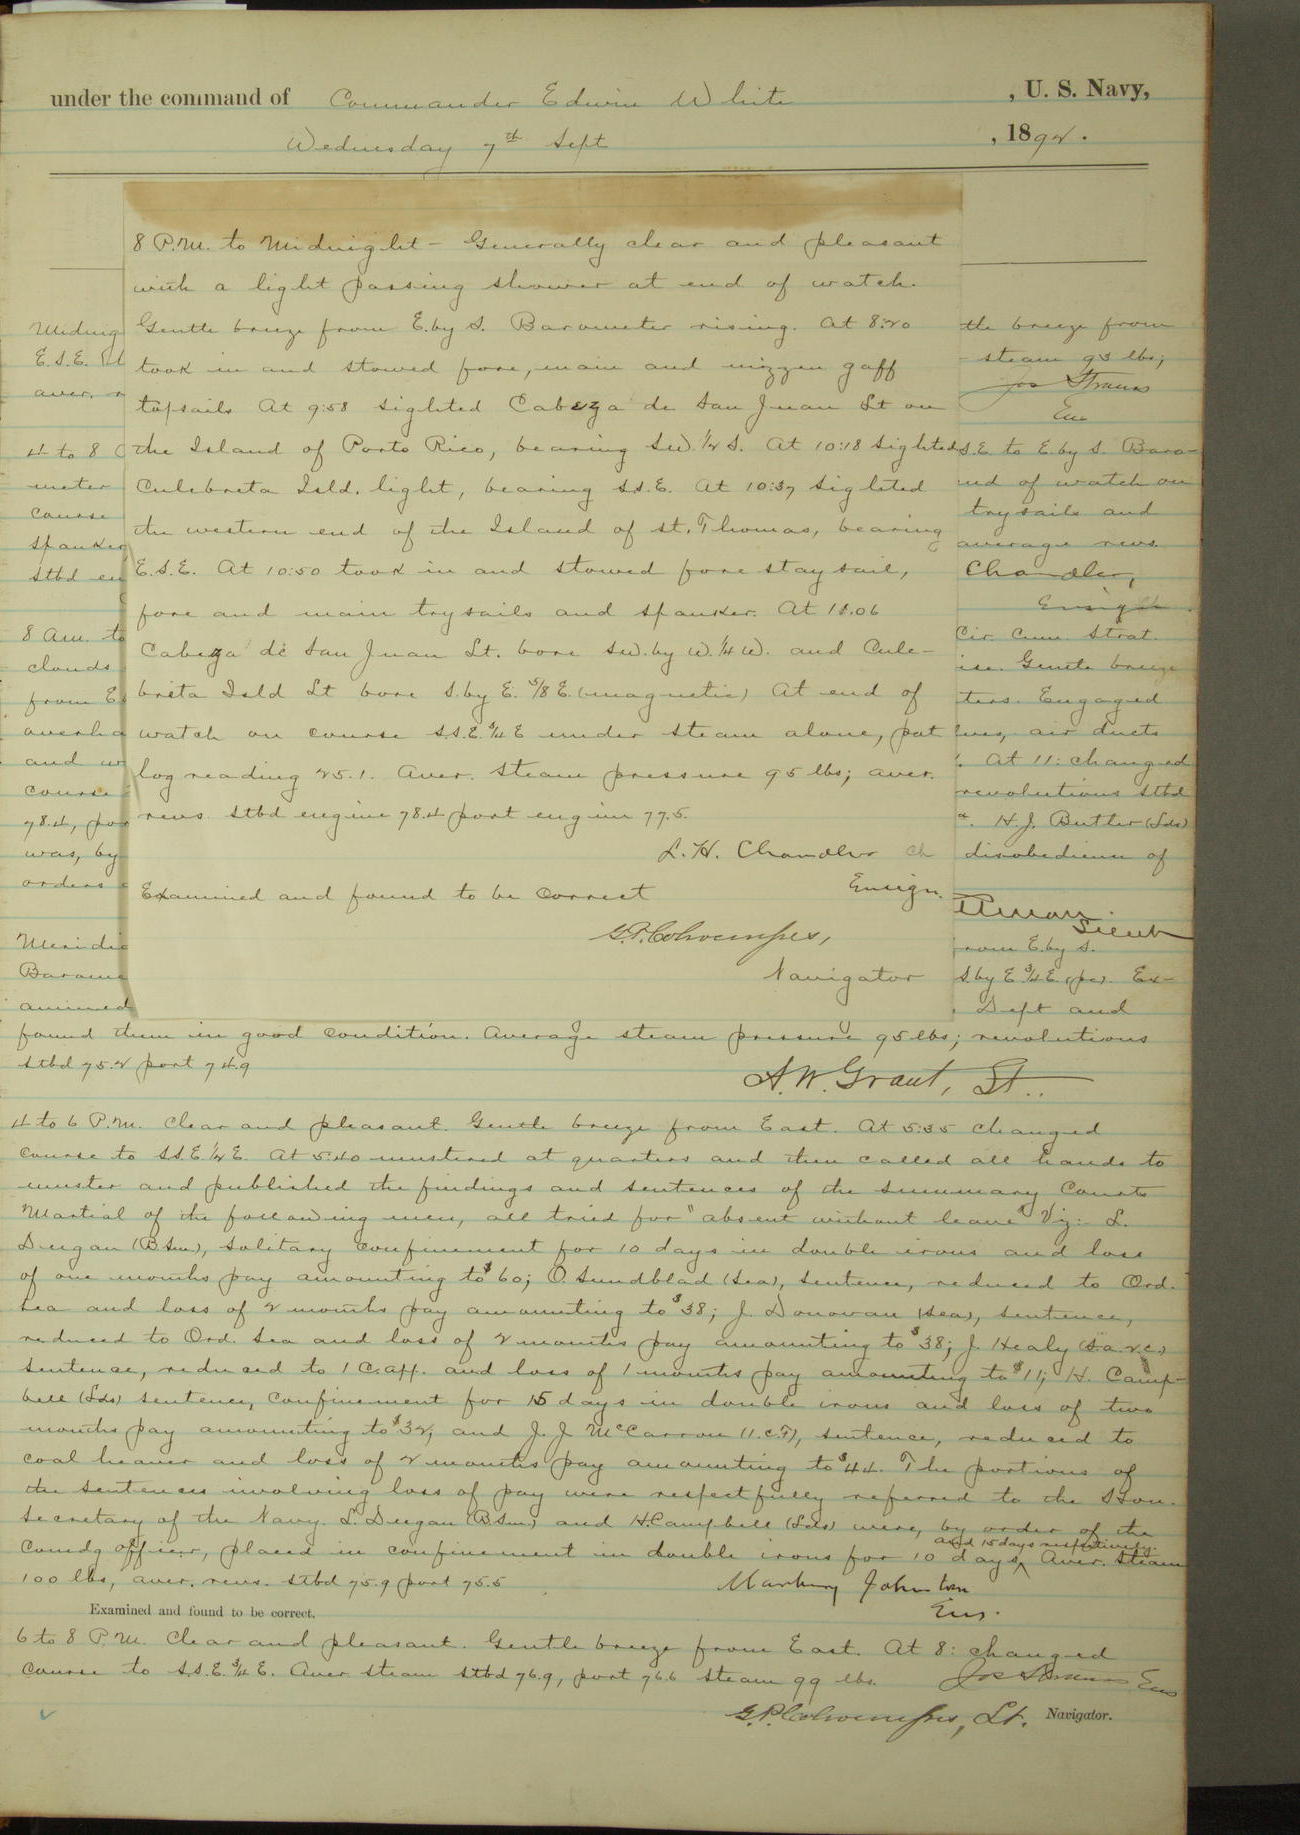 under the command of Commander Edwin White, U. S. Navy,
Wednesday 7th Sept, 1892.
8 P.M. to Midnight - Generally clear and pleasant
with a light passing shower at end of watch.
Gentle breeze from E. by S. Barometer rising. At 8:20
took in and stowed fore, main and mizzen gaff
topsails At 9:58 sighted Cabeza de San Juan Lt on
the Island of Porto Rico, bearing S.W. 1/2 S. At 10:18 sighted
Culebrita Isld. light, bearing S.S.E. At 10:37 sighted
the western end of the Island of St. Thomas, bearing
E.S.E. At 10:50 took in and stowed fore stay sail,
fore and main trysails and spanker. At 11.06
Cabeza de San Juan Lt. bore S.W. by W. 1/4 W. and Cule-
brita Isld Lt bore S. by E. 5/8 E. (magnetic) At end of
watch on course S.S.E. 3/4 E under steam alone, pat
log reading 25.1. Aver. steam pressure 95 lbs; aver.
revs. stbd engine 78.4 port engine 77.5.
L. H. Chandler
Ensign.
Examined and found to be correct
G. P. Colvocoresses,
Navigator
Midnig
E.S.E.
aver.
4 to 8
meter
course
spanker
stbd en
8 Am. to
clouds
from E
overha
and w
course
78.4, por
was, by
orders
Meridi
Barome
amined
the breeze from
steam 93 lbs;
Jos Strauss
Ens
S.E. to E. by S. Baro-
nd of watch on
trysails and
average revs.
Chandler,
Ensign
Cir. Cum. Strat.
ise. Gentle breeze
ters. Engaged
lves, air ducts
At 11: changed
revolutions stbd
H. J. Butler (Lds)
disobedience of
Lieut
rom E. by S.
S. by E. 3/4 E. (pc). Ex-
Dept and
found them in good condition. Average steam pressure 95 lbs; revolutions
stbd 75.2 port 74.9
A. W. Grant, Lt.
4 to 6 P.M. Clear and pleasant. Gentle breeze from East. At 5:35 changed
course to S.S.E. 1/2 E. At 5:40 mustered at quarters and then called all hands to
muster and published the findings and sentences of the Summary Courts
Martial of the following men, all tried for "absent without leave" Viz:- L.
Deegan (B.Sm.), solitary confinement for 10 days in double irons and loss
of one months pay amounting to $60; O. Sundblad (Sea), sentence, reduced to Ord.
Sea and loss of 2 months pay amounting to $38; J. Donovan (Sea), sentence,
reduced to Ord. Sea and loss of 2 months pay amounting to $38; J. Healy (S.a.2.c.)
sentence, reduced to 1 C. app. and loss of 1 months pay amounting to $11; H. Camp-
bell (Lds) sentence, confinement for 15 days in double irons and loss of two
months pay amounting to $32, and J. J. McCarron (1.c.F), sentence, reduced to
coal heaver and loss of 2 months pay amounting to $44. The portions of
the sentences involving loss of pay were respectfully referred to the Hon.
Secretary of the Navy. L. Deegan (B.Sm.) and H. Campbell (Lds) were, by order of the
and 15 days respectively.
Comdg officer, placed in confinement in double irons for 10 days ^ Aver. Steam
100 lbs, aver. revs. stbd 75.9 port 75.5
Marbury Johnston
Ens.
Examined and found to be correct.
6 to 8 P.M. Clear and pleasant. Gentle breeze from East. At 8: changed
course to S.S.E. 3/4 E. Aver steam stbd 76.9, port 76.6 steam 99 lbs.
Jos Strauss Ens
G. P. Colvocoresses, Lt. Navigator.